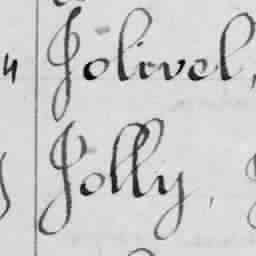 Jolivel,
Jolly,